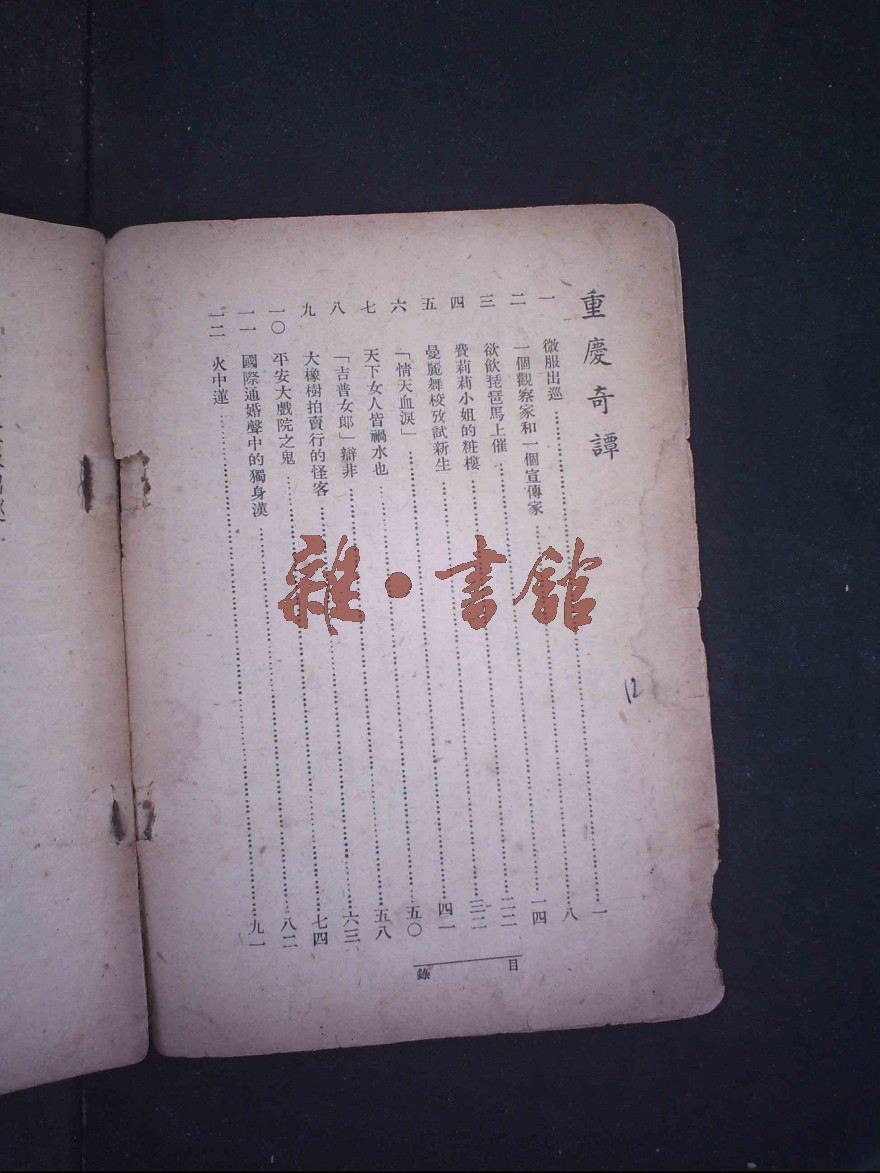 重慶奇譚
一 微服出巡……一
二 一個觀察家和一個宣傳家……八
三 欲飲琵琶馬上催……一四
四 費莉莉小姐的粧樓……二二
五 曼麗舞校攷試新生……三二
六 「情天血淚」……四一
七 天下女人皆禍水也……五〇
八 「吉普女郎」辯非……五八
九 大橡樹拍賣行的怪客……六三
一〇 平安大戲院之鬼……七四
一一 國際通婚聲中的獨身漢……八二
一二 火中蓮……九一
目錄
12
雜·書館